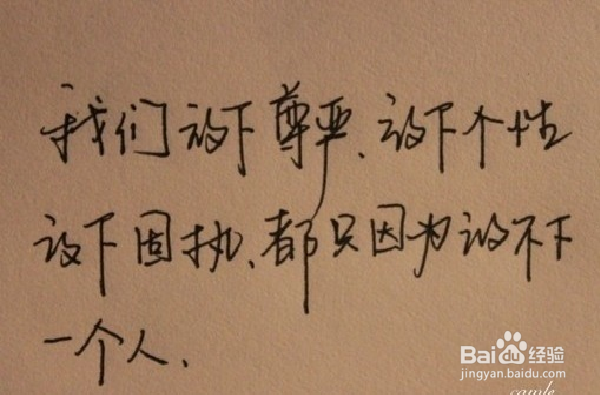 我们放下尊严、放下个性
放下固执、都只因为放不下
一个人、
Baidu经验
jingyan.baidu.com